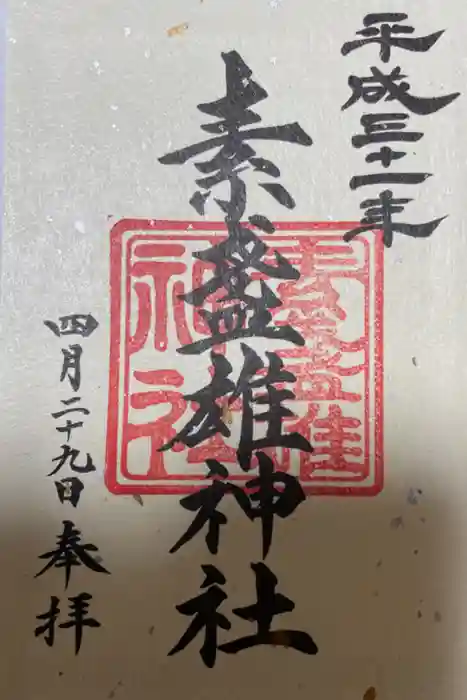 平成三十一年
素盞雄神社
四月二十九日奉拝
素盞雄
神社